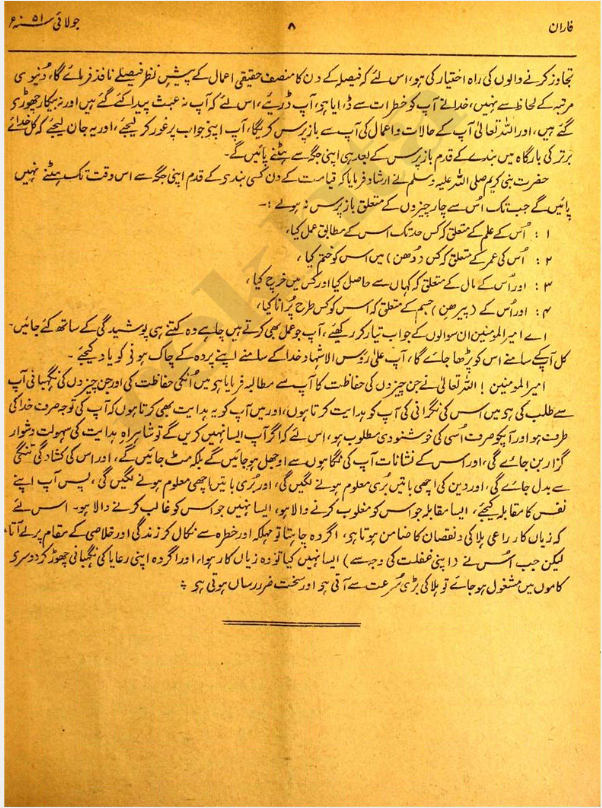 فاران ۸ جولائی سنہ ۵۱ء
تجاوز کرنے والوں کی راہ اختیار کی ہو، اس لئے کہ فیصلے کے دن کا منصف حقیقی اعمال کے پیش نظر فیصلے نافذ فرمائے گا، دُنیوی
مرتبہ کے لحاظ سے نہیں، خدا نے آپ کو خطرات سے ڈرایا ہی، آپ ڈریے، اس لئے کہ آپ نہ عبث پیدا کئے گئے ہیں اور نہ بیکار چھوڑی
گئے ہیں، اور اللہ تعالیٰ آپ کے حالات و اعمال کی آپ سے باز پرس کریگا، آپ اپنی جواب پر غور کر لیجئے، اور یہ جان لیجئے کہ کل خدائے
برتر کی بارگاہ میں بندے کے قدم باز پرس کے بعد ہی اپنی جگہ سے ہٹنے پائیں گے۔
حضرت نبی کریم صلی اللہ علیہ وسلم نے ارشاد فرمایا کہ قیامت کے دن کسی بندی کے قدم اپنی جگہ سے اس وقت تک ہٹنے نہیں
پائیں گے جب تک اُس سے چار چیزوں کے متعلق باز پرس نہ ہو لے :۔
۱ : اُس کے علم کے متعلق کہ کس حد تک اس کے مطابق عمل کیا،
۲ : اُس کی عمر کے متعلق کہ کس (دُھن) میں اس کو ختم کیا،
۳ : اور اُس کے مال کے متعلق کہ کہاں سے حاصل کیا اور کس میں خرچ کیا،
۴ : اور اُس کے (پیرھن) جسم کے متعلق کہ اس کو کس طرح پُرانا کیا،
اے امیر المومنین ان سوالوں کے جواب تیار کر رکھئے، آپ جو عمل بھی کرتے ہیں چاہے وہ کتنے ہی پوشیدگی کے ساتھ کئے جائیں۔
کل آپکے سامنے اس کو پڑھا جائے گا، آپ علیٰ رؤس الاشہاد خدا کے سامنے اپنے پردہ کے چاک ہونی کو یاد کیجئے ۔
امیر المومنین ! اللہ تعالیٰ نے جن چیزوں کی حفاظت کا آپ سے مطالبہ فرمایا ہو میں اُنکی حفاظت کی اور جن چیزوں کی نگہبانی آپ
سے طلب کی ہو میں اس کی نگرانی کی آپ کو ہدایت کرتا ہوں، اور میں آپ کو یہ ہدایت بھی کرتا ہوں کہ آپ کی توجہ صرف خدا کی
طرف ہو اور آپکو صرف اُسی کی خوشنودی مطلوب ہو، اس لئے کہ اگر آپ ایسا نہیں کریں گے تو شاہراہ ہدایت کی سہولت دشوار
گزار بن جائے گی، اور اس کے نشانات آپ کی نگاہوں سے اوجھل ہو جائیں گے بلکہ مٹ جائیں گے، اور اس کی کشادگی تنگی
سے بدل جائے گی، اور دین کی اچھی باتیں بُری معلوم ہونے لگیں گی، اور بُری باتیں اچھی معلوم ہونے لگیں گی، پس آپ اپنے
نفس کا مقابلہ کیجئے، ایسا مقابلہ جو اس کو مغلوب کرنے والا ہو، ایسا نہیں جو اس کو غالب کرنے والا ہو۔ اس لئے
کہ زیاں کار راعی ہلاکی و نقصان کا ضامن ہوتا ہی، اگر وہ چاہتا تو مہلکہ اور خطرہ سے نکال کر زندگی اور خلاصی کے مقام پر لے آتا،
لیکن جب اُس نے (اپنی غفلت کی وجہ سے) ایسا نہیں کیا تو وہ زیاں کار ہوا، اور اگر وہ اپنی رعایا کی نگہبانی چھوڑ کر دوسری
کاموں میں مشغول ہو جائے تو ہلاکی بڑی سُرعت سے آتی ہو اور سخت ضرر رساں ہوتی ہو ؞